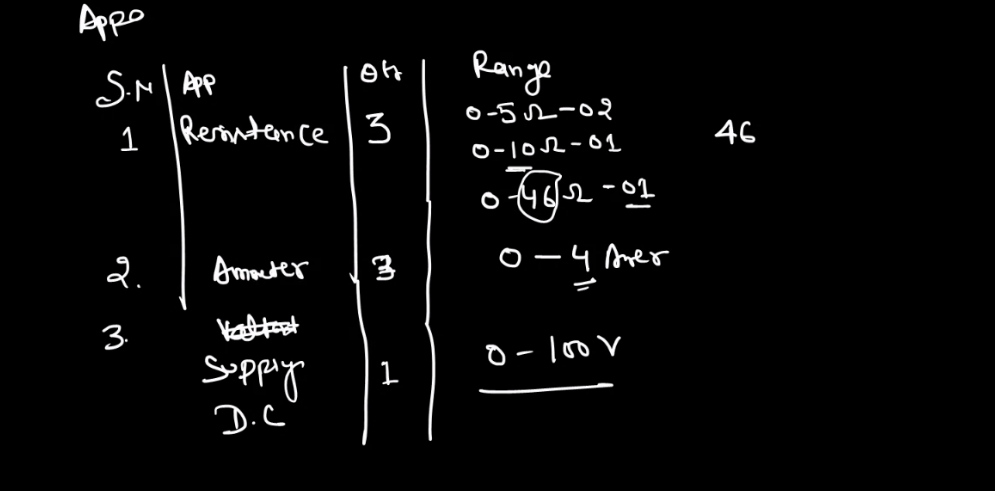 Appo
S.N App Qty Range
1 Resistence 3 0-5Ω-02
0-10Ω-01 46
0-46Ω-01
2. Ammeter 3 0-4 Amer
3.
Supply 1 0-100V
D.C